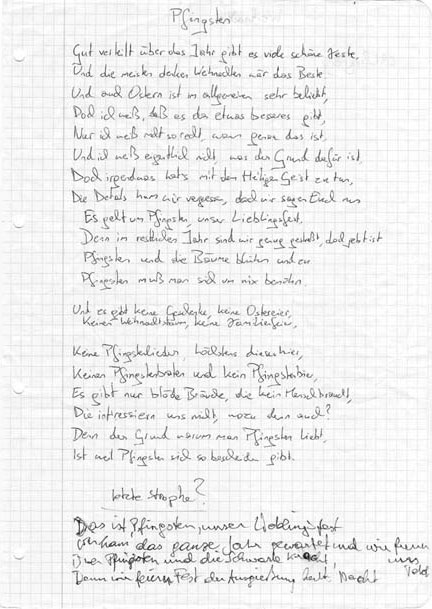 Pfingsten
Gut verteilt über das Jahr gibt es viele schöne Feste,
Und die meisten denken Weihnachten wär das Beste
Und auch Ostern ist im allgemeinen sehr beliebt,
Doch ich weiß, daß es da etwas besseres gibt,
Nur ich weiß nicht so recht, wann genau das ist.
Und ich weiß eigentlich nicht, was der Grund dafür ist,
Doch irgendwas hat's mit dem Heiligen Geist zu tun,
Die Details ham wir vergessen, doch wir sagen Euch nun
Es geht um Pfingsten, unser Lieblingsfest.
Denn im restlichen Jahr sind wir genug gestreßt, doch jetzt ist
Pfingsten und die Bäume blühen und zu
Pfingsten muß man sich um nix bemühn.
Und es gibt keine Geschenke, keine Ostereier,
Keinen Weihnachtsbaum, keine Familienfeier,
Keine Pfingstlieder, höchstens dieses hier,
Keinen Pfingstbraten und kein Pfingstbier,
Es gibt nur blöde Bräuche, die kein Mensch braucht,
Die intressieren uns nicht, wozu denn auch?
Denn der Grund warum man Pfingsten liebt,
Ist weil Pfingsten sich so bescheiden gibt.
letzte Strophe?
Das ist Pfingsten, unser Lieblingsfest
wir ham das ganze Jahr gewartet und wir freuen uns
Pfingsten und die Schwarte kracht,
Denn wir feiern Fest der heut Nacht